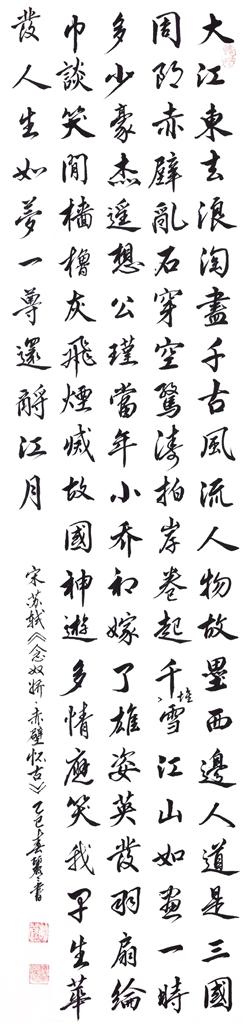 大江東去浪淘盡千古風流人物故壘西邊人道是三國
周郎赤壁亂石穿空驚濤拍岸卷起千堆雪江山如畫一時
多少豪杰遥想公瑾當年小乔初嫁了雄姿英發羽扇綸
巾談笑間檣櫓灰飛煙滅故國神遊多情應笑我早生華
發人生如夢一尊還酹江月
宋苏軾《念奴娇·赤壁怀古》乙巳春書